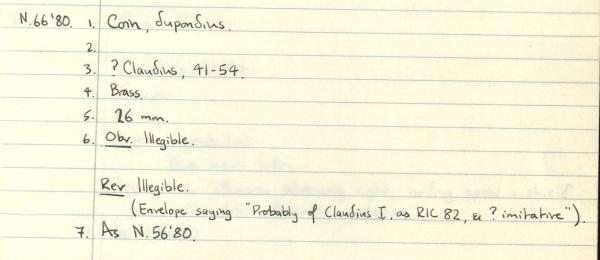 N.66'80. 1. Coin, dupondius.
2.
3. ? Claudius, 41-54.
4. Brass.
5. 26 mm.
6. Obv. Illegible.
Rev Illegible.
(Envelope saying "Probably of Claudius I, as RIC 82, & ? imitative").
7. As N.56'80.